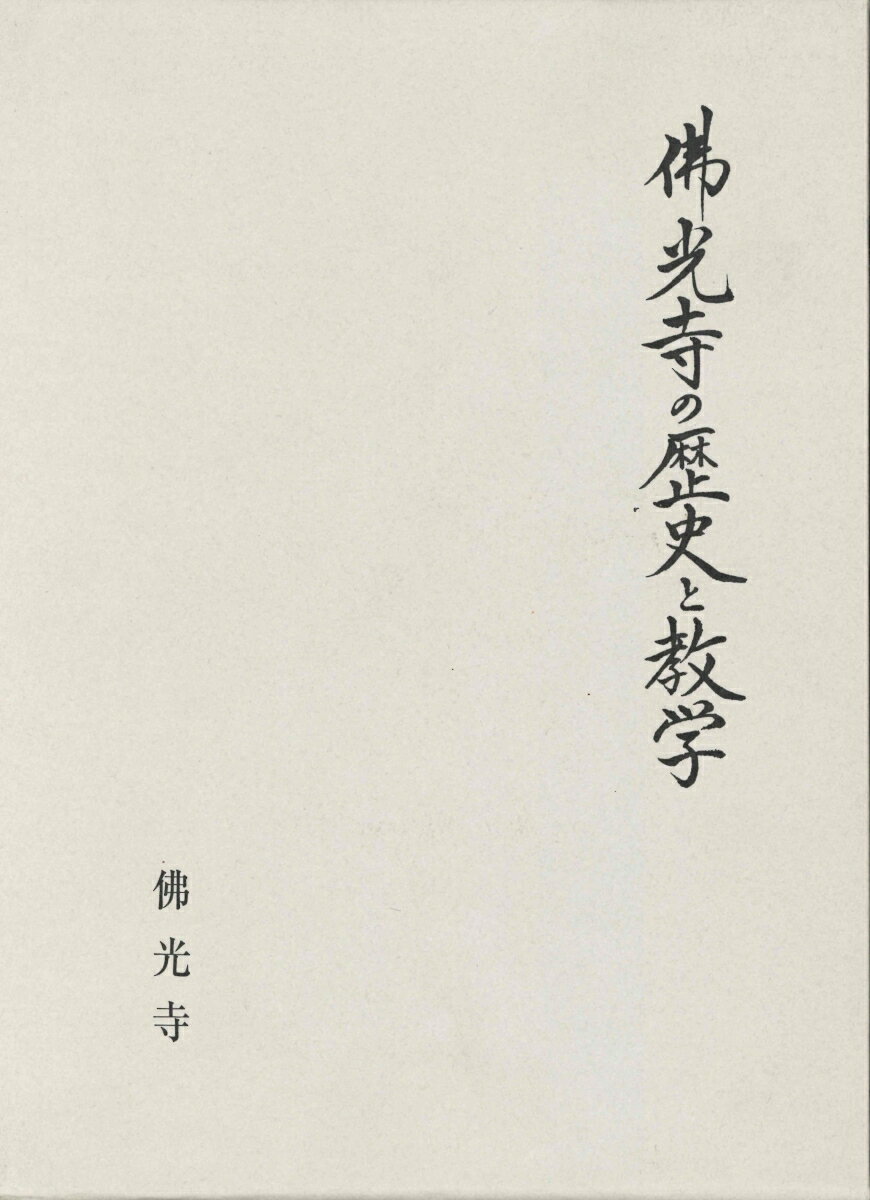 佛光寺の歴史と教学
佛光寺